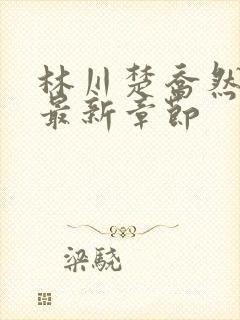 林川楚乔然
最新章节
梁骁